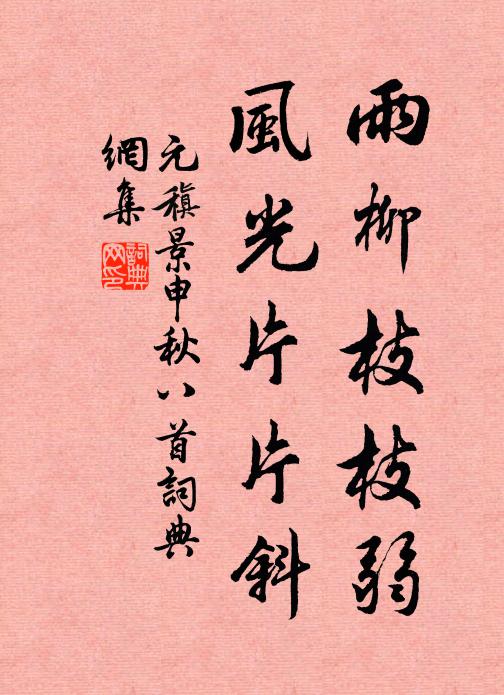 雨柳枝枝弱
風光片片斜
元稹景申秋八首詞典
網集
詞典
网印